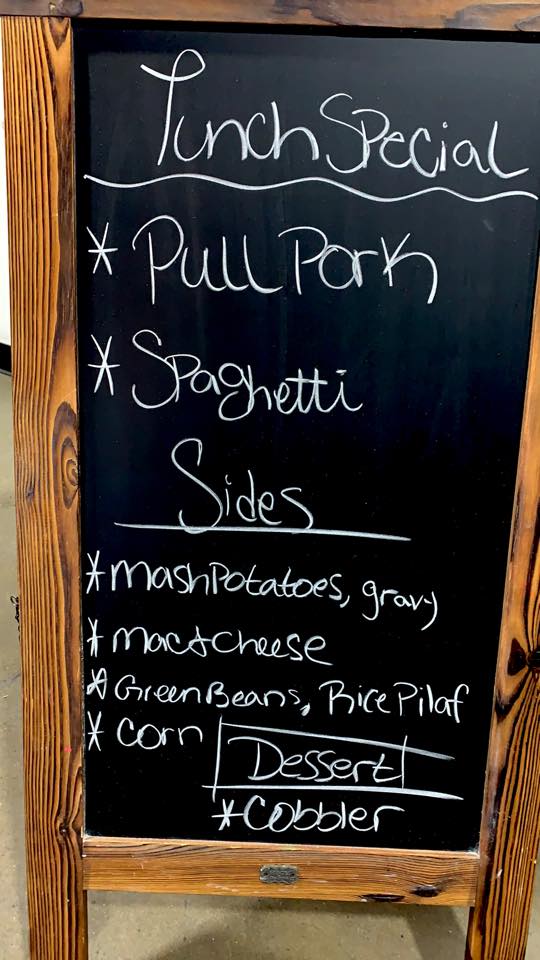 Lunch Special
* Pull Pork
* Spaghetti
Sides
* mash Potatoes, gravy
* mac & cheese
* Green Beans, Rice Pilaf
* corn
Dessert
* Cobbler